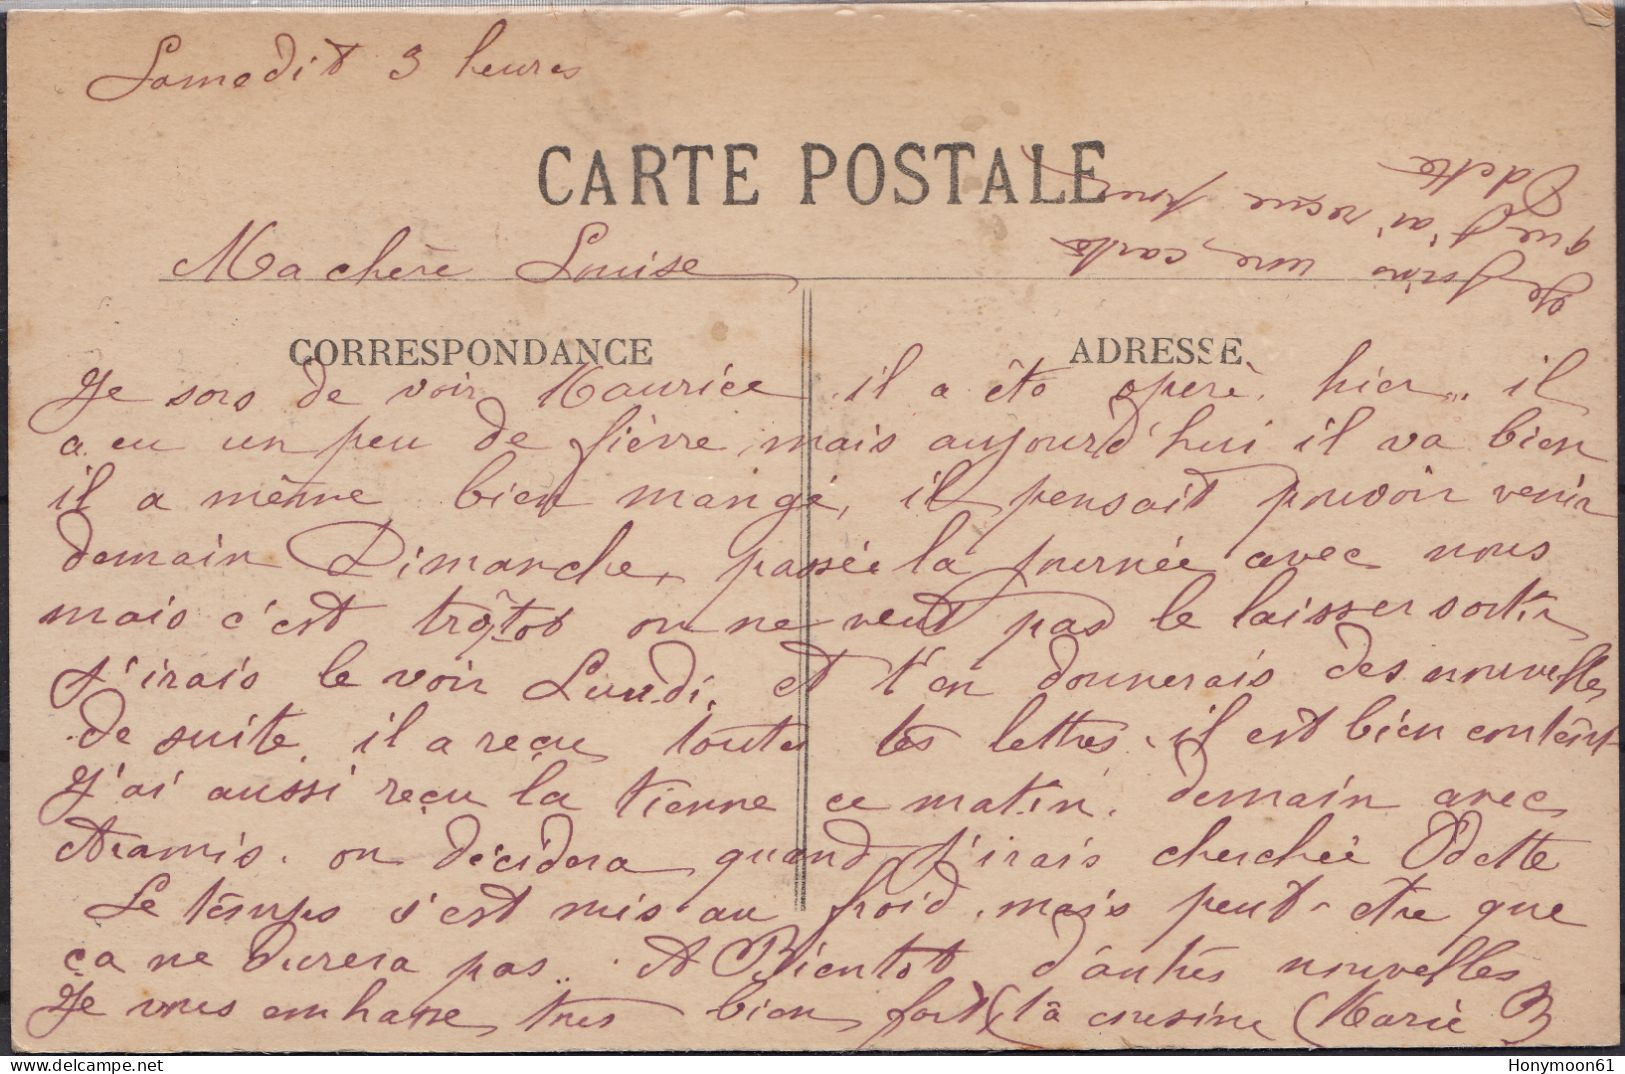 Samedit 3 heures
CARTE POSTALE
Ma chère Louise
CORRESPONDANCE
ADRESSE
Je sors de voir Maurice. il a êtо operè, hier... il
a eu un peu de fièvre, mais aujourd'hui il va bien
il a même bien mangé, il pensait pouvoir venir
demain Dimanche, passée la journée avec nous
mais c'est trôtot on ne veut pas le laisser sortir
j'irais le voir Lundi, et t'en donnerais des nouvelles
de suite, il a reçu toutes tes lettres, il est bien content
J'ai aussi reçu la tienne ce matin. demain avec
Aramis. on décidera quand j'irais cherchée Odette
Le temps s'est mis au froid, mais peut-etre que
ça ne durera pas... A Bientot d'autres nouvelles
Je vous embrasse tres bien fort ta cousine (Marie B
Je joins une carte
que j'ai reçue pour
Odette
Honymoon61